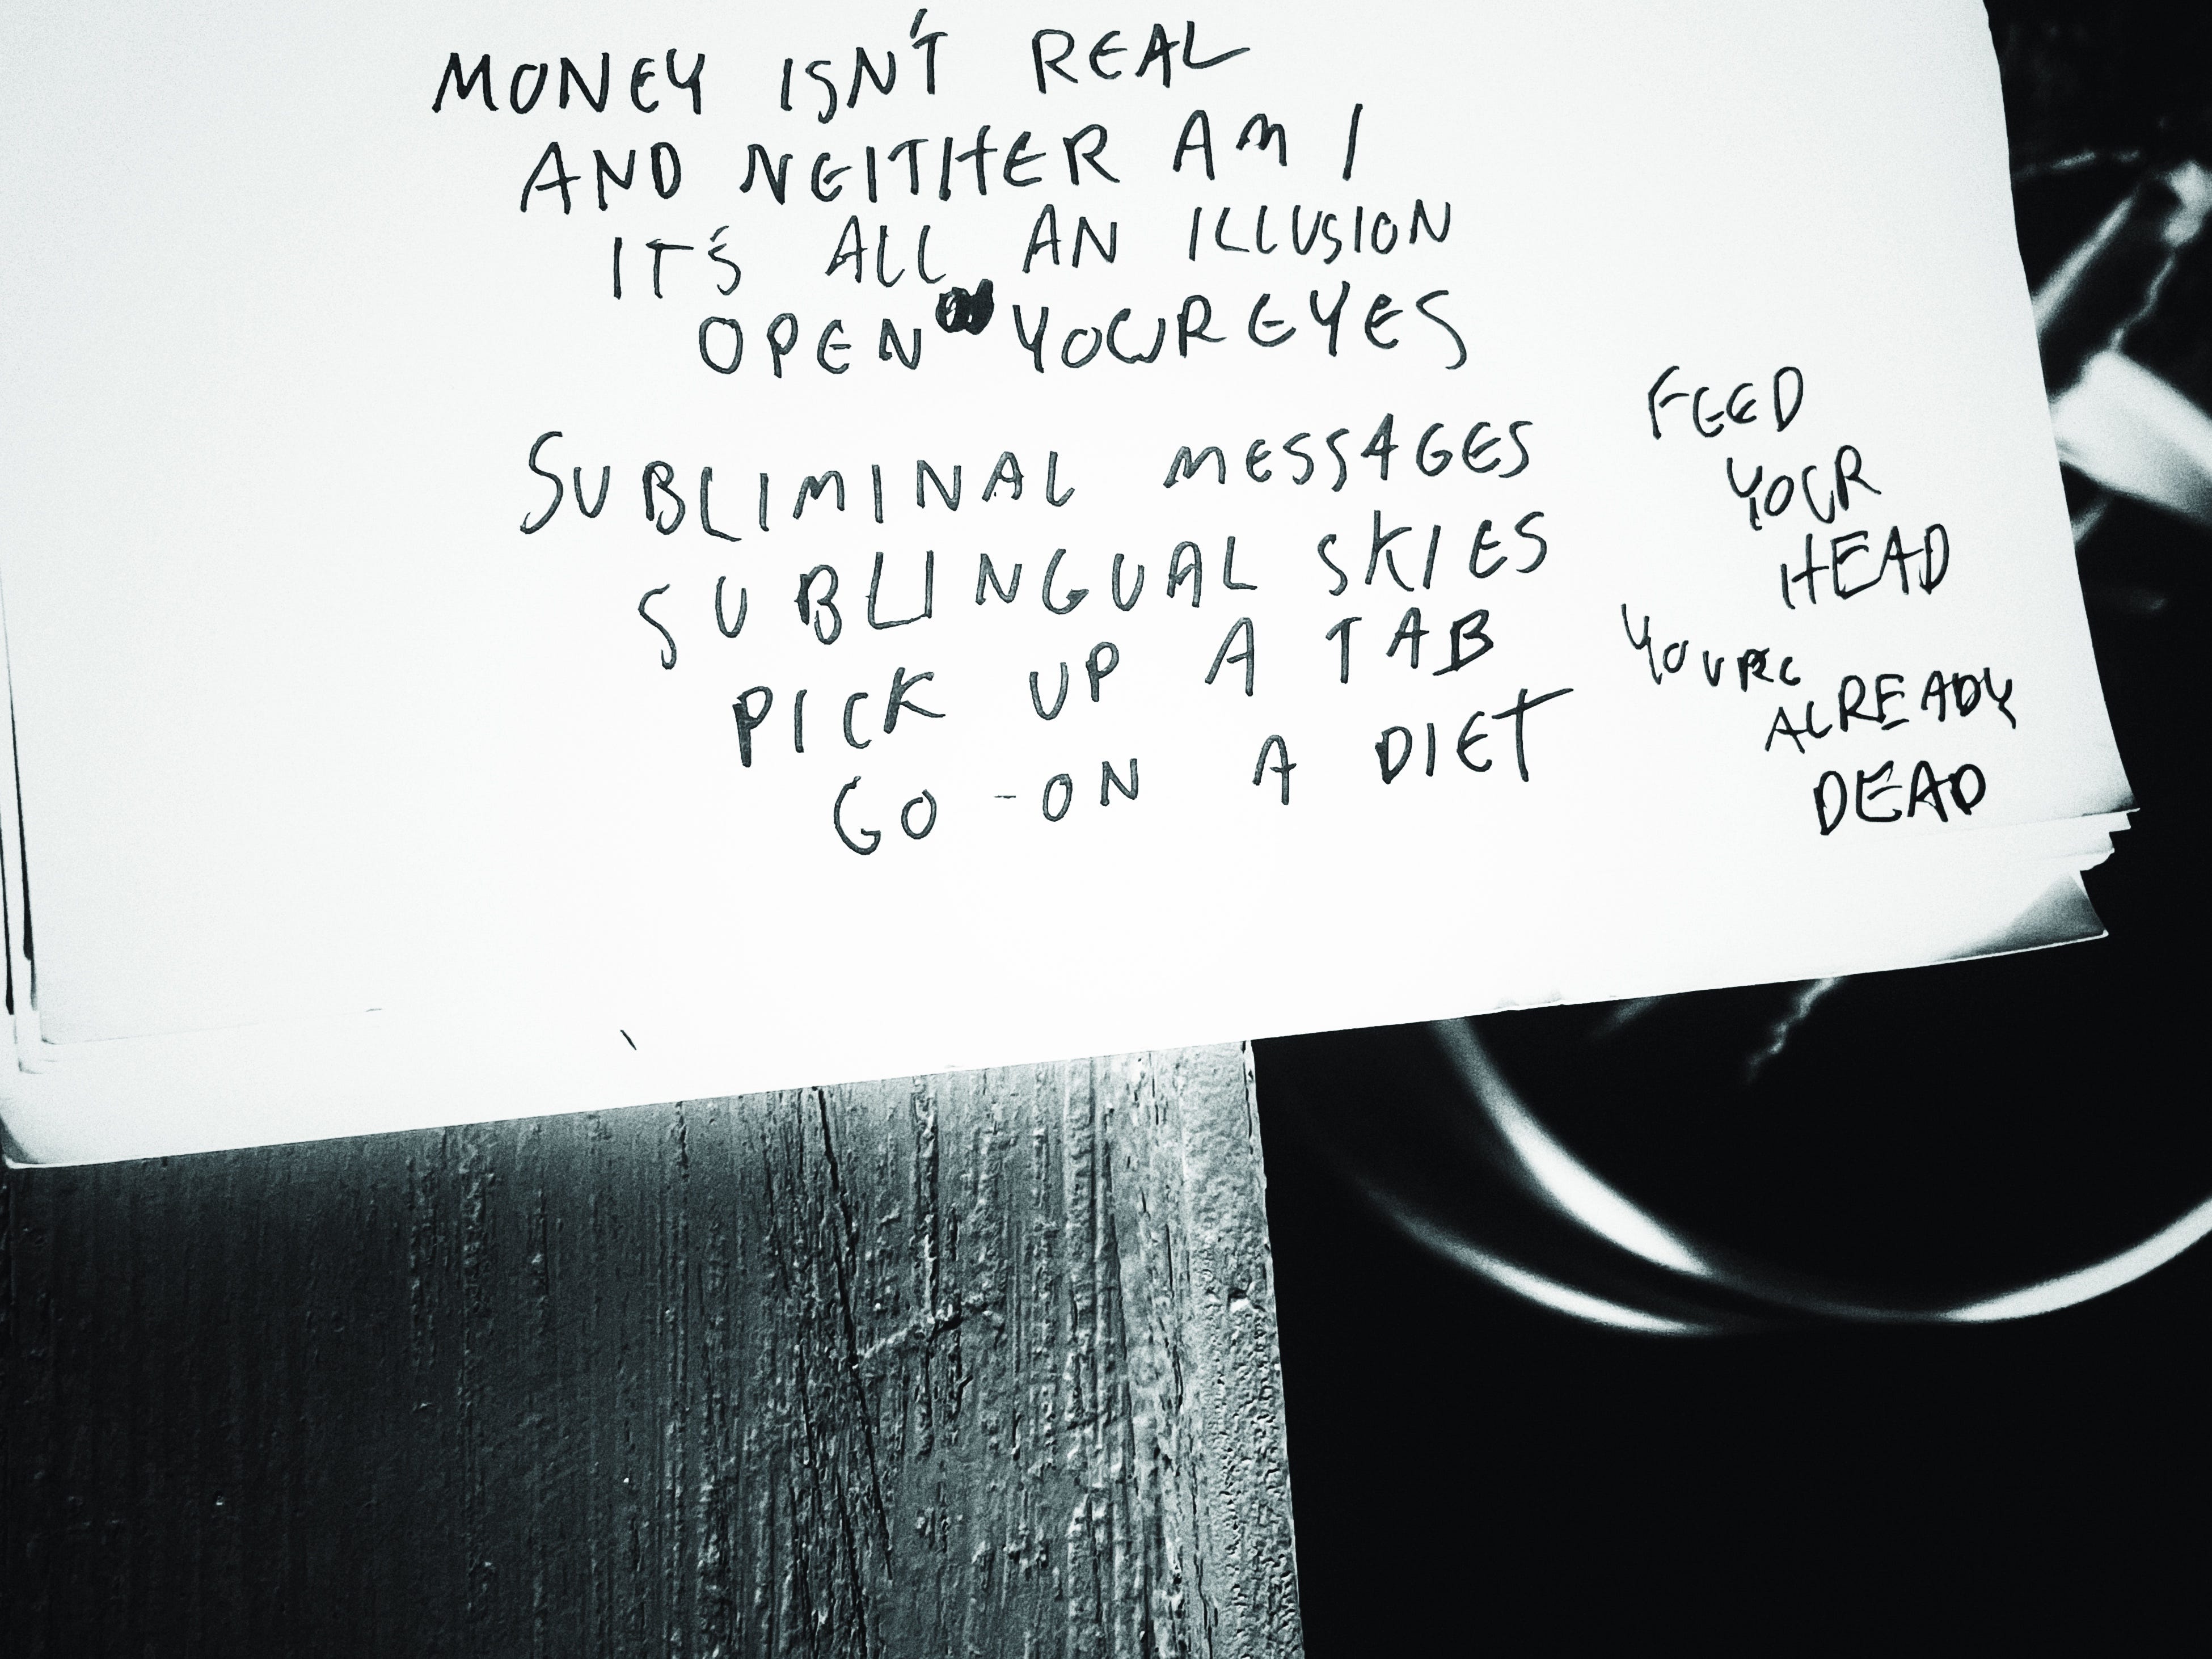 MONEY ISN'T REAL
AND NEITHER AM I
IT'S ALL AN ILLUSION
OPEN YOUR EYES
SUBLIMINAL MESSAGES
SUBLINGUAL SKIES
PICK UP A TAB
GO - ON A DIET
FEED
YOUR
HEAD
YOURE
ALREADY
DEAD